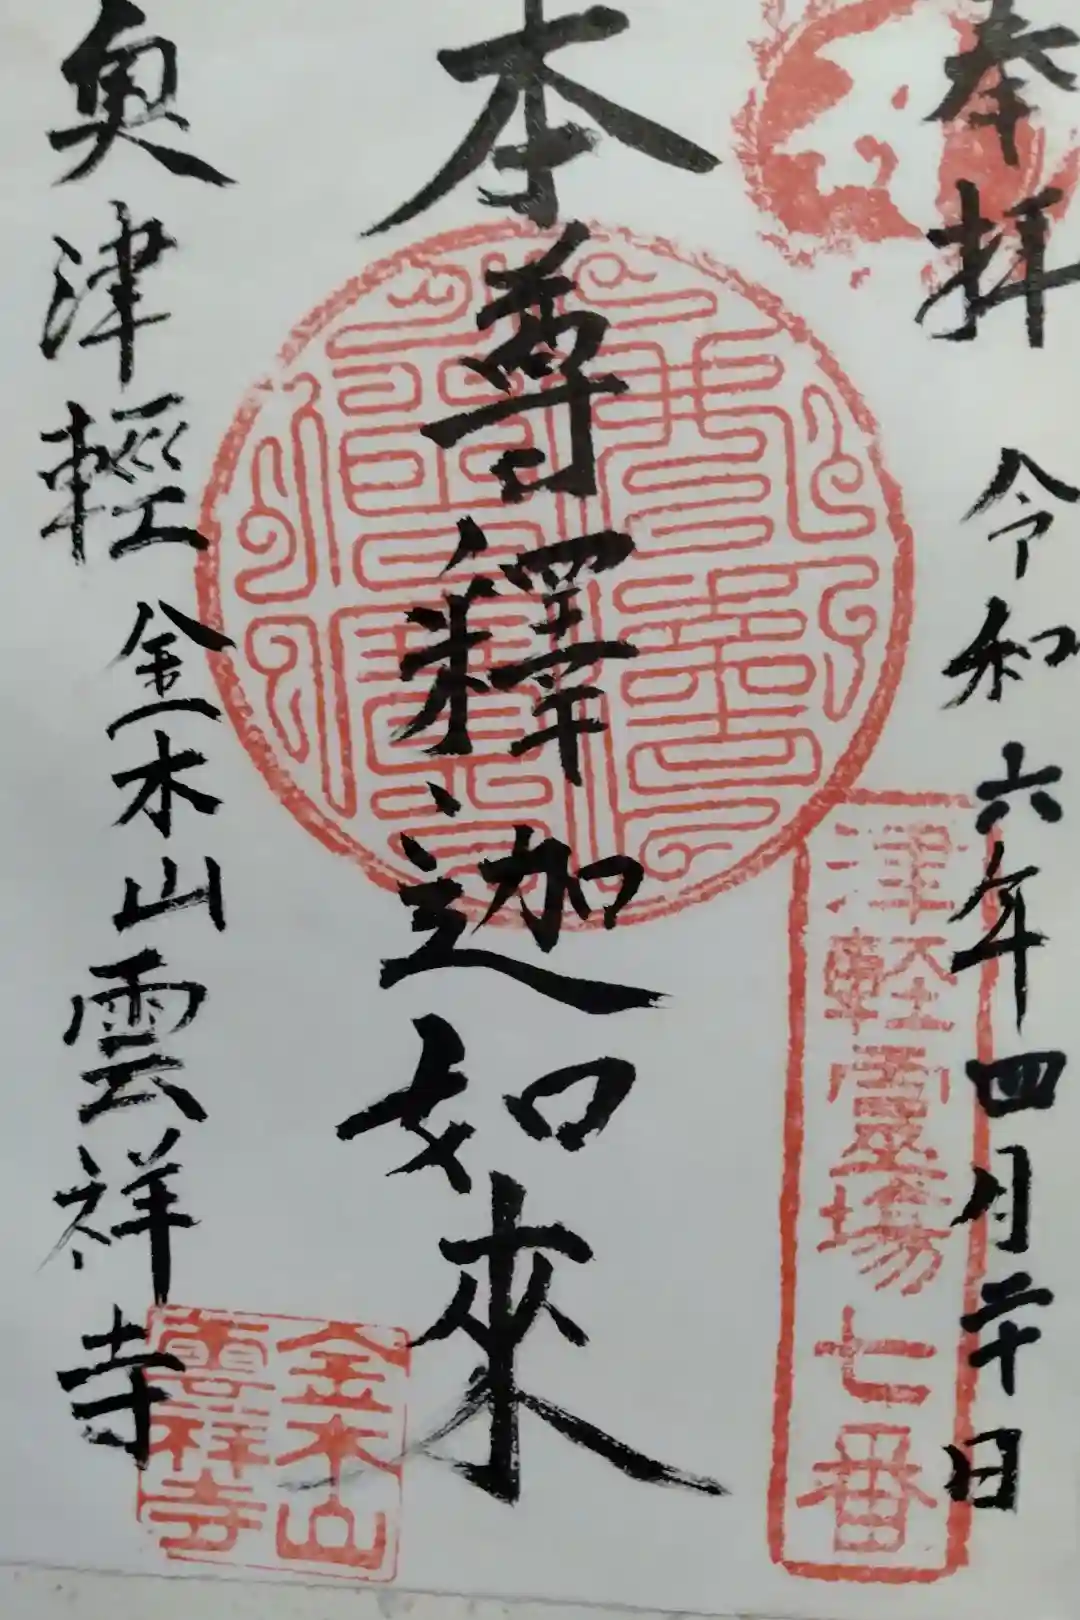 奉拝 令和六年四月二十日
津軽霊場七番
本尊釋迦如來
奥津輕金木山雲祥寺
金木山
雲祥寺